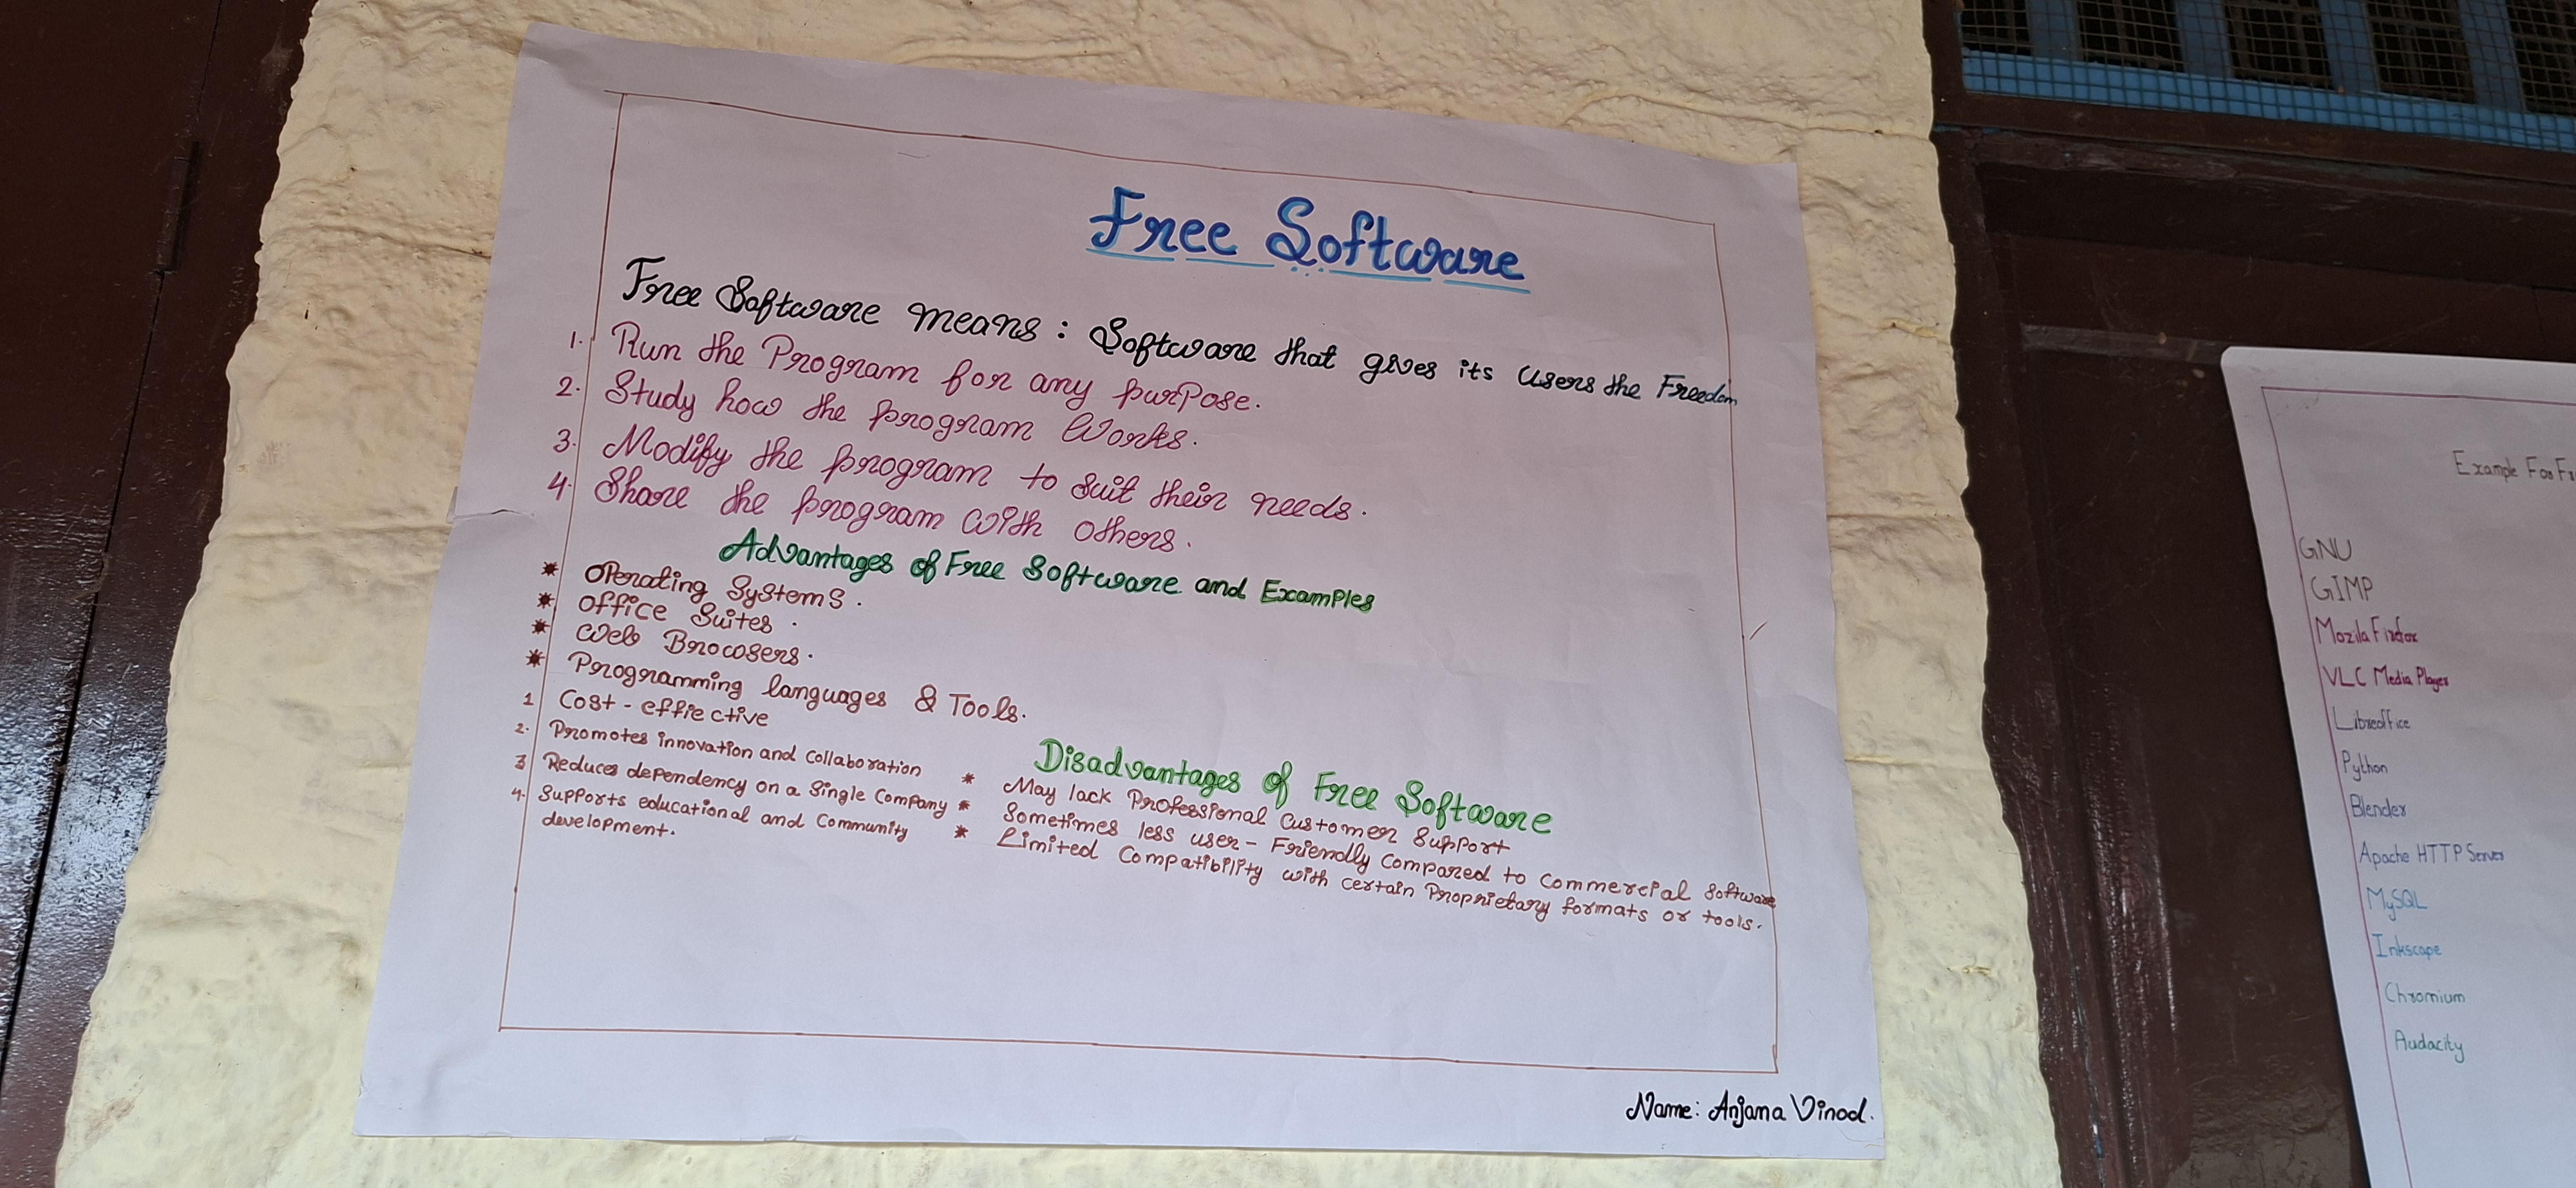 Free Software
Free Software means : Software that gives its users the Freedom
1. Run the Program for any purPose.
2. Study how the program Works.
3. Modify the program to suit their needs.
4. Share the program with others.
Advantages of Free Software and Examples
* Operating Systems.
* Office Suites.
* Web Browsers.
* Programming languages & Tools.
1 Cost - effiective
2. Promotes innovation and collaboration
3 Reduces dependency on a Single Company
4. Supports educational and Community
development.
Disadvantages of Free Software
* May lack Professional Customer Support
* Sometimes less user - Friendly Compared to commercial software
* Limited Compatibility with certain Proprietary formats or tools.
Name: Anjana Vinod.
Example For
GNU
GIMP
Mozila Firefox
VLC Media Player
Libreoffice
Python
Blender
Apache HTTP Server
MySQL
Inkscape
Chromium
Audacity